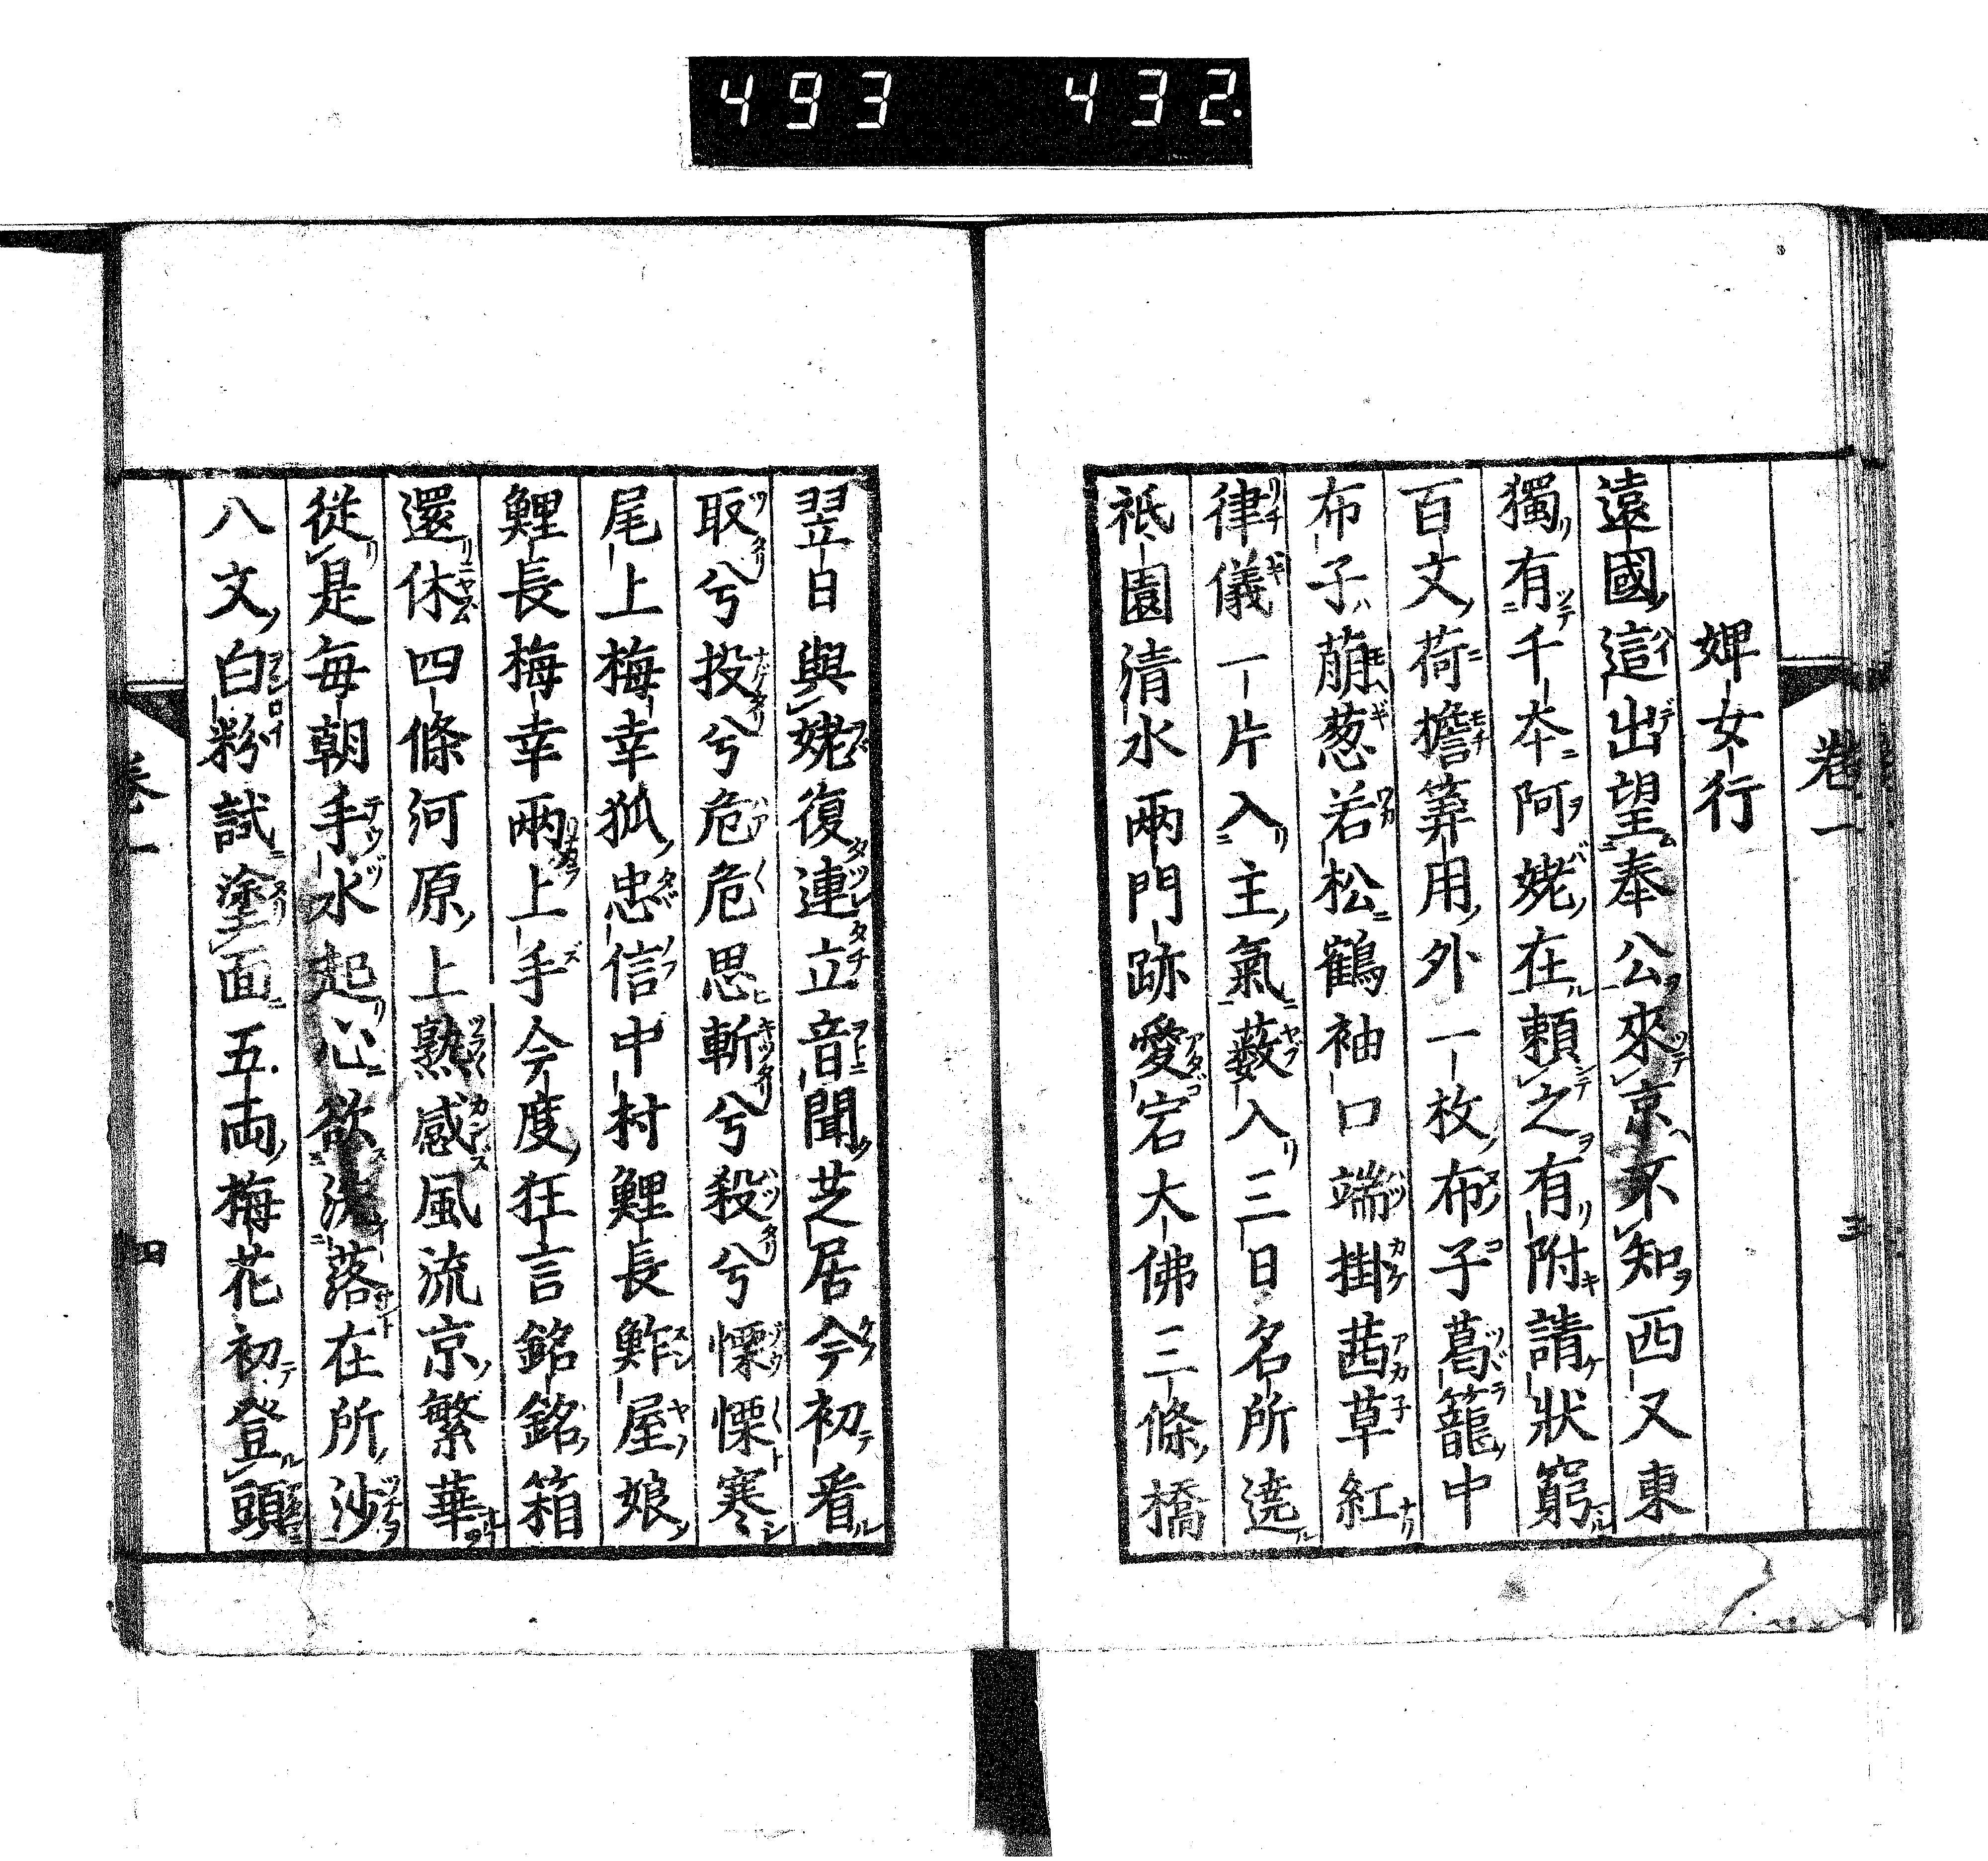 493 432.
卷一 三
婢女行
遠國這出望奉公來京不知西又東
獨有千本阿姥在賴之有附請狀窮
百文荷擔筭用外一枚布子葛籠中
布子萠葱若松鶴袖口端掛茜草紅
律儀一片入主氣薮入三日名所遶
祗園清水兩門跡愛宕大佛三條橋
翌日與姥復連立音聞芝居今初看
取兮投兮危危思斬兮殺兮慄慄寒
尾上梅幸狐忠信中村鯉長鮓屋娘
鯉長梅幸兩上手今度狂言銘銘箱
還休四條河原上熟感風流京繁華
從是每朝手水起心欲洗落在所沙
八文白粉試塗面五両梅花初登頭
卷一 四